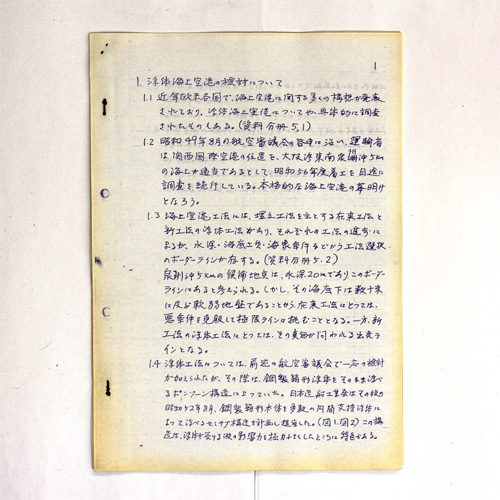 1
1. 浮体海上空港の検討について
1.1 近年欧米各国で、海上空港に関する多くの構想が発表
されており、浮体海上空港についても、具体的に調査
されたものもある。(資料分冊5.1)
1.2 昭和49年8月の航空審議会の答申に沿い、運輸省
は関西国際空港の位置を、大阪湾東南泉州沖5km
の海上が適当であるとして、昭和56年度着工を目途に
調査を続行している。本格的な海上空港の幕明け
となろう。
1.3 海上空港の工法には、埋立工法を主とする在来工法と
新工法の浮体工法があり、それぞれの工法の選択に
よるが、水深・海底土質・海象条件などから工法選択
のボーダーラインが存する。(資料分冊5.2)
泉州沖5kmの候補地点は、水深20mでありこのボーダー
ラインにあると考えられる。しかし、その海底下は数十米
に及ぶ軟弱地盤であることから、在来工法にとっては、
悪条件を克服して極限ラインに挑むこととなる。一方、新
工法の浮体工法にとっては、その真価が問われる出発ラ
インとなる。
1.4 浮体工法については、前述の航空審議会で一応の検討
が加えられたが、その際は、鋼製箱形浮体をそのまま浮べ
るポンツーン構造によっていた。日本造船工業会はその後の
昭和52年8月、鋼製箱形本体を多数の円筒支持浮体に
よって浮べるセミサブ構造を計画し提案した。(図1.図2)この構
造は、浮体が受ける波の影響力を極力小さくしたところに特色がある。